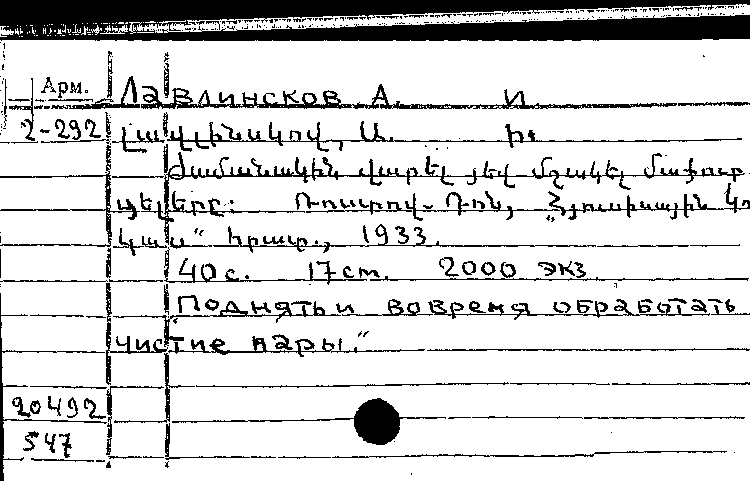 Арм. Лавлинсков А. И.
2-292 Լավլինսկով, Ա. Ի.
Ժամանակին վարել յեվ մշակել մաքուր
ցելերը: Ռոստով-Դոն, „Հյուսիսային Կով
կաս“ հրատ., 1933.
40 с. 17 cm. 2000 экз.
„Поднять и вовремя обработать
чистие пары."
20492
547